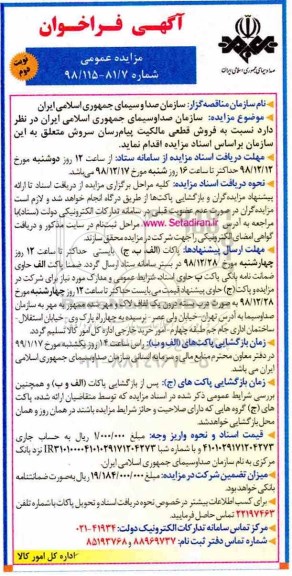 آگهی فراخوان
مزایده عمومی
شماره ۹۸/۱۱۵-۸۱/۷
نوبت دوم
صدا و سیمای جمهوری اسلامی ایران
نام سازمان مناقصه‌گزار: سازمان صدا و سیمای جمهوری اسلامی ایران
موضوع مزایده: سازمان صداوسیمای جمهوری اسلامی ایران در نظر
دارد نسبت به فروش قطعی مالکیت پیام‌رسان سروش متعلق به این
سازمان براساس اسناد مزایده اقدام نماید.
مهلت دریافت اسناد مزایده از سامانه ستاد: از ساعت ۱۲ روز دوشنبه مورخ
۹۸/۱۲/۱۲ حداکثر تا ساعت ۱۶ روز شنبه مورخ ۹۸/۱۲/۱۷ می‌باشد.
نحوه دریافت اسناد مزایده: کلیه مراحل برگزاری مزایده از دریافت اسناد تا ارائه
پیشنهاد مزایده‌گران و بازگشایی پاکت‌ها از طریق درگاه انجام خواهد شد و لازم است
مزایده‌گران در صورت عدم عضویت قبلی در سامانه تدارکات الکترونیکی دولت (ستاد) با
مراجعه به آدرس www.Setadiran.ir مراحل ثبت‌نام در سایت مذکور و دریافت
گواهی امضای الکترونیکی را جهت شرکت در مزایده محقق سازند.
مهلت ارسال پیشنهادها: پاکات (الف، ب، ج) بایستی حداکثر تا ساعت ۱۲ روز
چهارشنبه مورخ ۹۸/۱۲/۲۸ در بستر سامانه ستاد ارسال گردد. ضمناً پاکت الف حاوی
ضمانت نامه بانکی پاکت ب حاوی اسناد، شرایط عمومی و مدارک مورد نیاز برای شرکت در
مزایده و پاکت (ج) حاوی پیشنهاد قیمت می‌بایست حداکثر تا ساعت ۱۲ روز چهارشنبه مورخ
۹۸/۱۲/۲۸ به صورت دربسته درون یک لفاف لاک و مهر شده ممهور به مهر به سازمان
صداوسیما به آدرس تهران، خیابان ولی عصر، نرسیده به چهارراه پارک وی، خیابان استقلال،
ساختمان اداری جام جم طبقه چهارم، امور خرید خارجی اداره کل امور کالا تسلیم گردد.
زمان بازگشایی پاکت‌های (الف و ب): راس ساعت ۱۴ روز یکشنبه مورخ ۹۹/۱/۱۷
در دفتر معاون محترم منابع مالی و سرمایه انسانی سازمان صداوسیمای جمهوری اسلامی
ایران می باشد.
زمان بازگشایی پاکت های (ج): پس از بازگشایی پاکات (الف و ب) و همچنین
بررسی شرایط عمومی ذکر شده در اسناد مزایده که توسط متقاضیان ارائه شده، پاکت
های (ج) گروه هایی که دارای صلاحیت و حائز شرایط مزایده باشند در همان روز و همان
محل بازگشایی خواهد شد.
قیمت اسناد و نحوه واریز وجه: مبلغ ۱/۰۰۰/۰۰۰ ریال به حساب جاری
مرکزی به نام سازمان صداوسیمای جمهوری اسلامی ایران.
میزان تضمین شرکت در مزایده: مبلغ ۱۹/۱۸۴/۰۰۰/۰۰۰ ریال به صورت ضمانتنامه
بانکی خواهد بود.
برای کسب اطلاعات بیشتر در خصوص نحوه دریافت اسناد و تحویل پاکات با شماره تلفن
۲۲۱۹۷۴۶۳ تماس حاصل فرمایید.
مرکز تماس سامانه تدارکات الکترونیک دولت: ۴۱۹۳۴-۰۲۱
شماره تماس دفتر ثبت نام: ۸۸۹۶۹۷۳۷ و ۸۵۱۹۳۷۶۸
اداره کل امور کالا